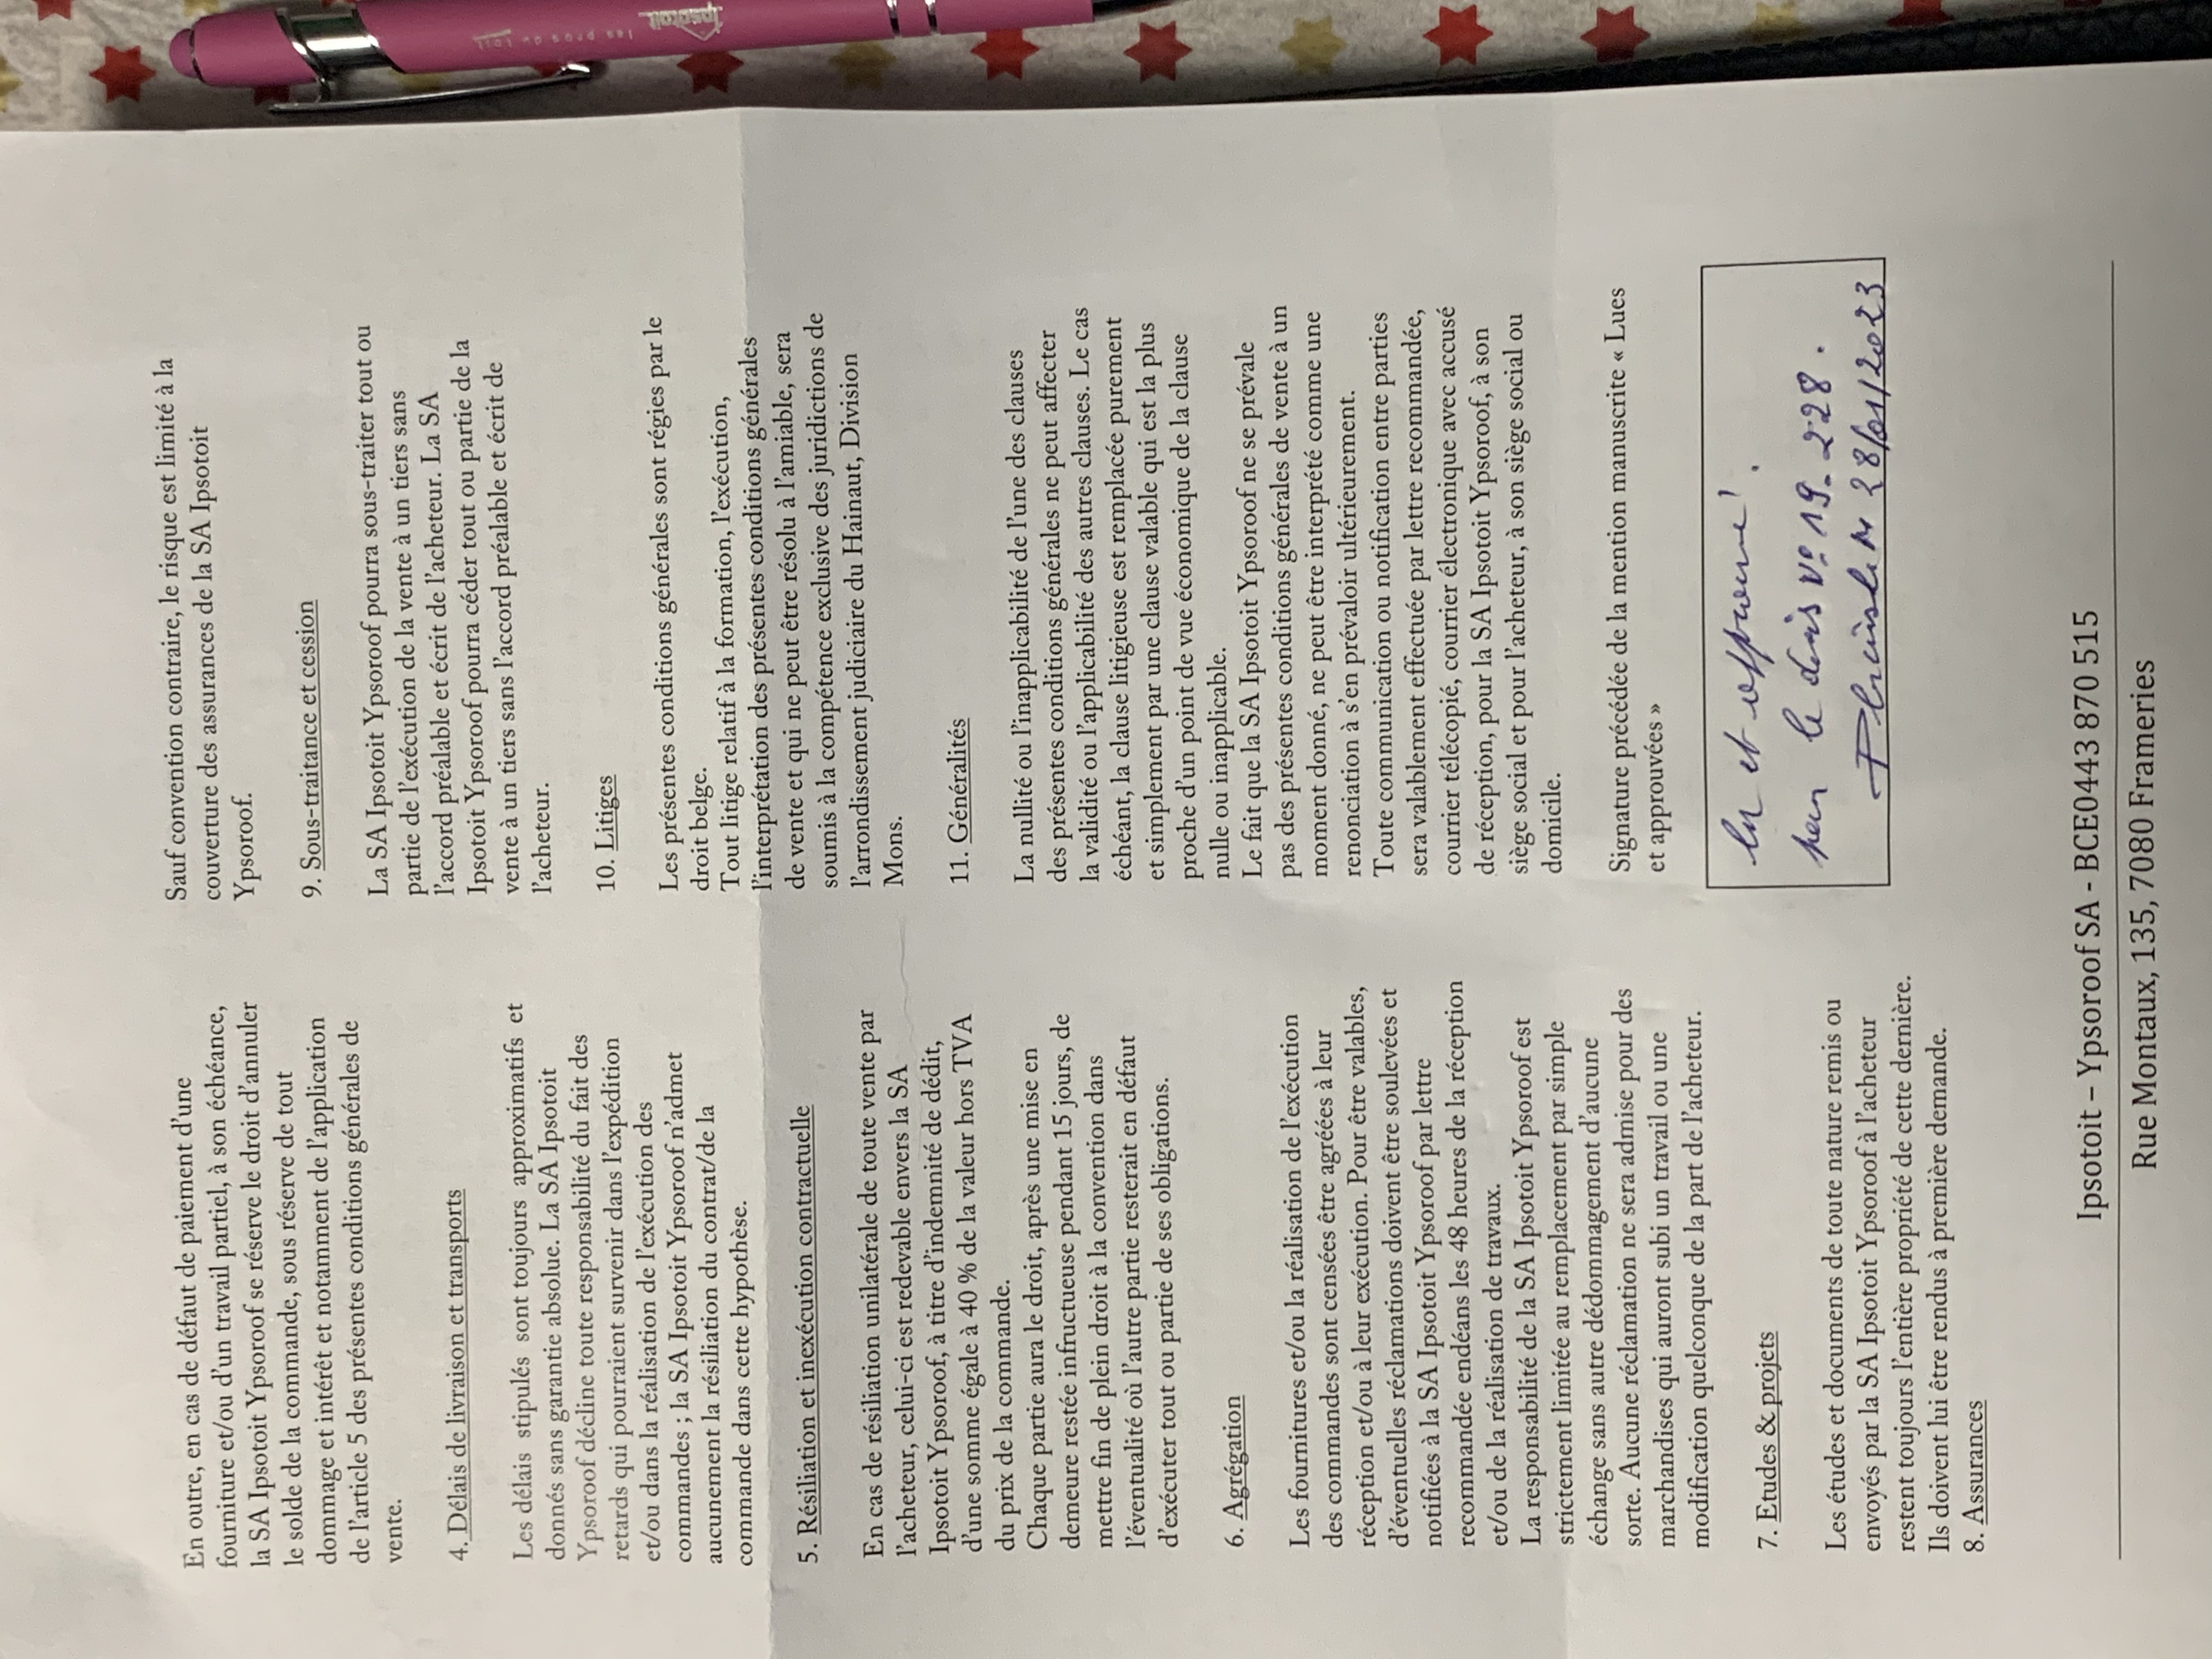 En outre, en cas de défaut de paiement d'une
fourniture et/ou d'un travail partiel, à son échéance,
la SA Ipsotoit Ypsoroof se réserve le droit d'annuler
le solde de la commande, sous réserve de tout
dommage et intérêt et notamment de l'application
de l'article 5 des présentes conditions générales de
vente.
4. Délais de livraison et transports
Les délais stipulés sont toujours approximatifs et
donnés sans garantie absolue. La SA Ipsotoit
Ypsoroof décline toute responsabilité du fait des
retards qui pourraient survenir dans l'expédition
et/ou dans la réalisation de l'exécution des
commandes ; la SA Ipsotoit Ypsoroof n'admet
aucunement la résiliation du contrat/de la
commande dans cette hypothèse.
5. Résiliation et inexécution contractuelle
En cas de résiliation unilatérale de toute vente par
l'acheteur, celui-ci est redevable envers la SA
Ipsotoit Ypsoroof, à titre d'indemnité de dédit,
d'une somme égale à 40 % de la valeur hors TVA
du prix de la commande.
Chaque partie aura le droit, après une mise en
demeure restée infructueuse pendant 15 jours, de
mettre fin de plein droit à la convention dans
l'éventualité où l'autre partie resterait en défaut
d'exécuter tout ou partie de ses obligations.
6. Agrégation
Les fournitures et/ou la réalisation de l'exécution
des commandes sont censées être agréées à leur
réception et/ou à leur exécution. Pour être valables,
d'éventuelles réclamations doivent être soulevées et
notifiées à la SA Ipsotoit Ypsoroof par lettre
recommandée endéans les 48 heures de la réception
et/ou de la réalisation de travaux.
La responsabilité de la SA Ipsotoit Ypsoroof est
strictement limitée au remplacement par simple
échange sans autre dédommagement d'aucune
sorte. Aucune réclamation ne sera admise pour des
marchandises qui auront subi un travail ou une
modification quelconque de la part de l'acheteur.
7. Etudes & projets
Les études et documents de toute nature remis ou
envoyés par la SA Ipsotoit Ypsoroof à l'acheteur
restent toujours l'entière propriété de cette dernière.
Ils doivent lui être rendus à première demande.
8. Assurances
Sauf convention contraire, le risque est limité à la
couverture des assurances de la SA Ipsotoit
Ypsoroof.
9. Sous-traitance et cession
La SA Ipsotoit Ypsoroof pourra sous-traiter tout ou
partie de l'exécution de la vente à un tiers sans
l'accord préalable et écrit de l'acheteur. La SA
Ipsotoit Ypsoroof pourra céder tout ou partie de la
vente à un tiers sans l'accord préalable et écrit de
l'acheteur.
10. Litiges
Les présentes conditions générales sont régies par le
droit belge.
Tout litige relatif à la formation, l'exécution,
l'interprétation des présentes conditions générales
de vente et qui ne peut être résolu à l'amiable, sera
soumis à la compétence exclusive des juridictions de
l'arrondissement judiciaire du Hainaut, Division
Mons.
11. Généralités
La nullité ou l'inapplicabilité de l'une des clauses
des présentes conditions générales ne peut affecter
la validité ou l'applicabilité des autres clauses. Le cas
échéant, la clause litigieuse est remplacée purement
et simplement par une clause valable qui est la plus
proche d'un point de vue économique de la clause
nulle ou inapplicable.
Le fait que la SA Ipsotoit Ypsoroof ne se prévale
pas des présentes conditions générales de vente à un
moment donné, ne peut être interprété comme une
renonciation à s'en prévaloir ultérieurement.
Toute communication ou notification entre parties
sera valablement effectuée par lettre recommandée,
courrier télécopié, courrier électronique avec accusé
de réception, pour la SA Ipsotoit Ypsoroof, à son
siège social et pour l'acheteur, à son siège social ou
domicile.
Signature précédée de la mention manuscrite « Lues
et approuvées »
Lu et approuvé.
pour le devis N° 19-228.
28/01/2023
Ipsotoit – Ypsoroof SA - BCE0443 870 515
Rue Montaux, 135, 7080 Frameries
Ipsotoit
les pros du toit